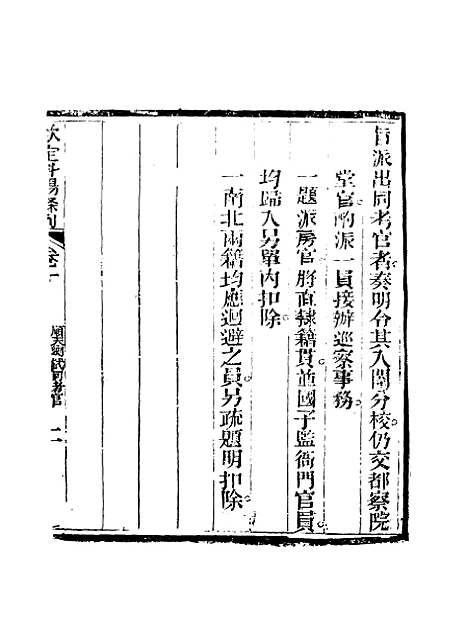 旨派出同考官者奏明令其入闈分校仍交都察院
堂官酌派一員接辦巡察事務
一題派房官將直隸籍貫並國子監衙門官員
均歸入另單內扣除
一南北兩籍均應迴避之員另疏題明扣除
欽定科場條例 卷十 順天鄉試同考官